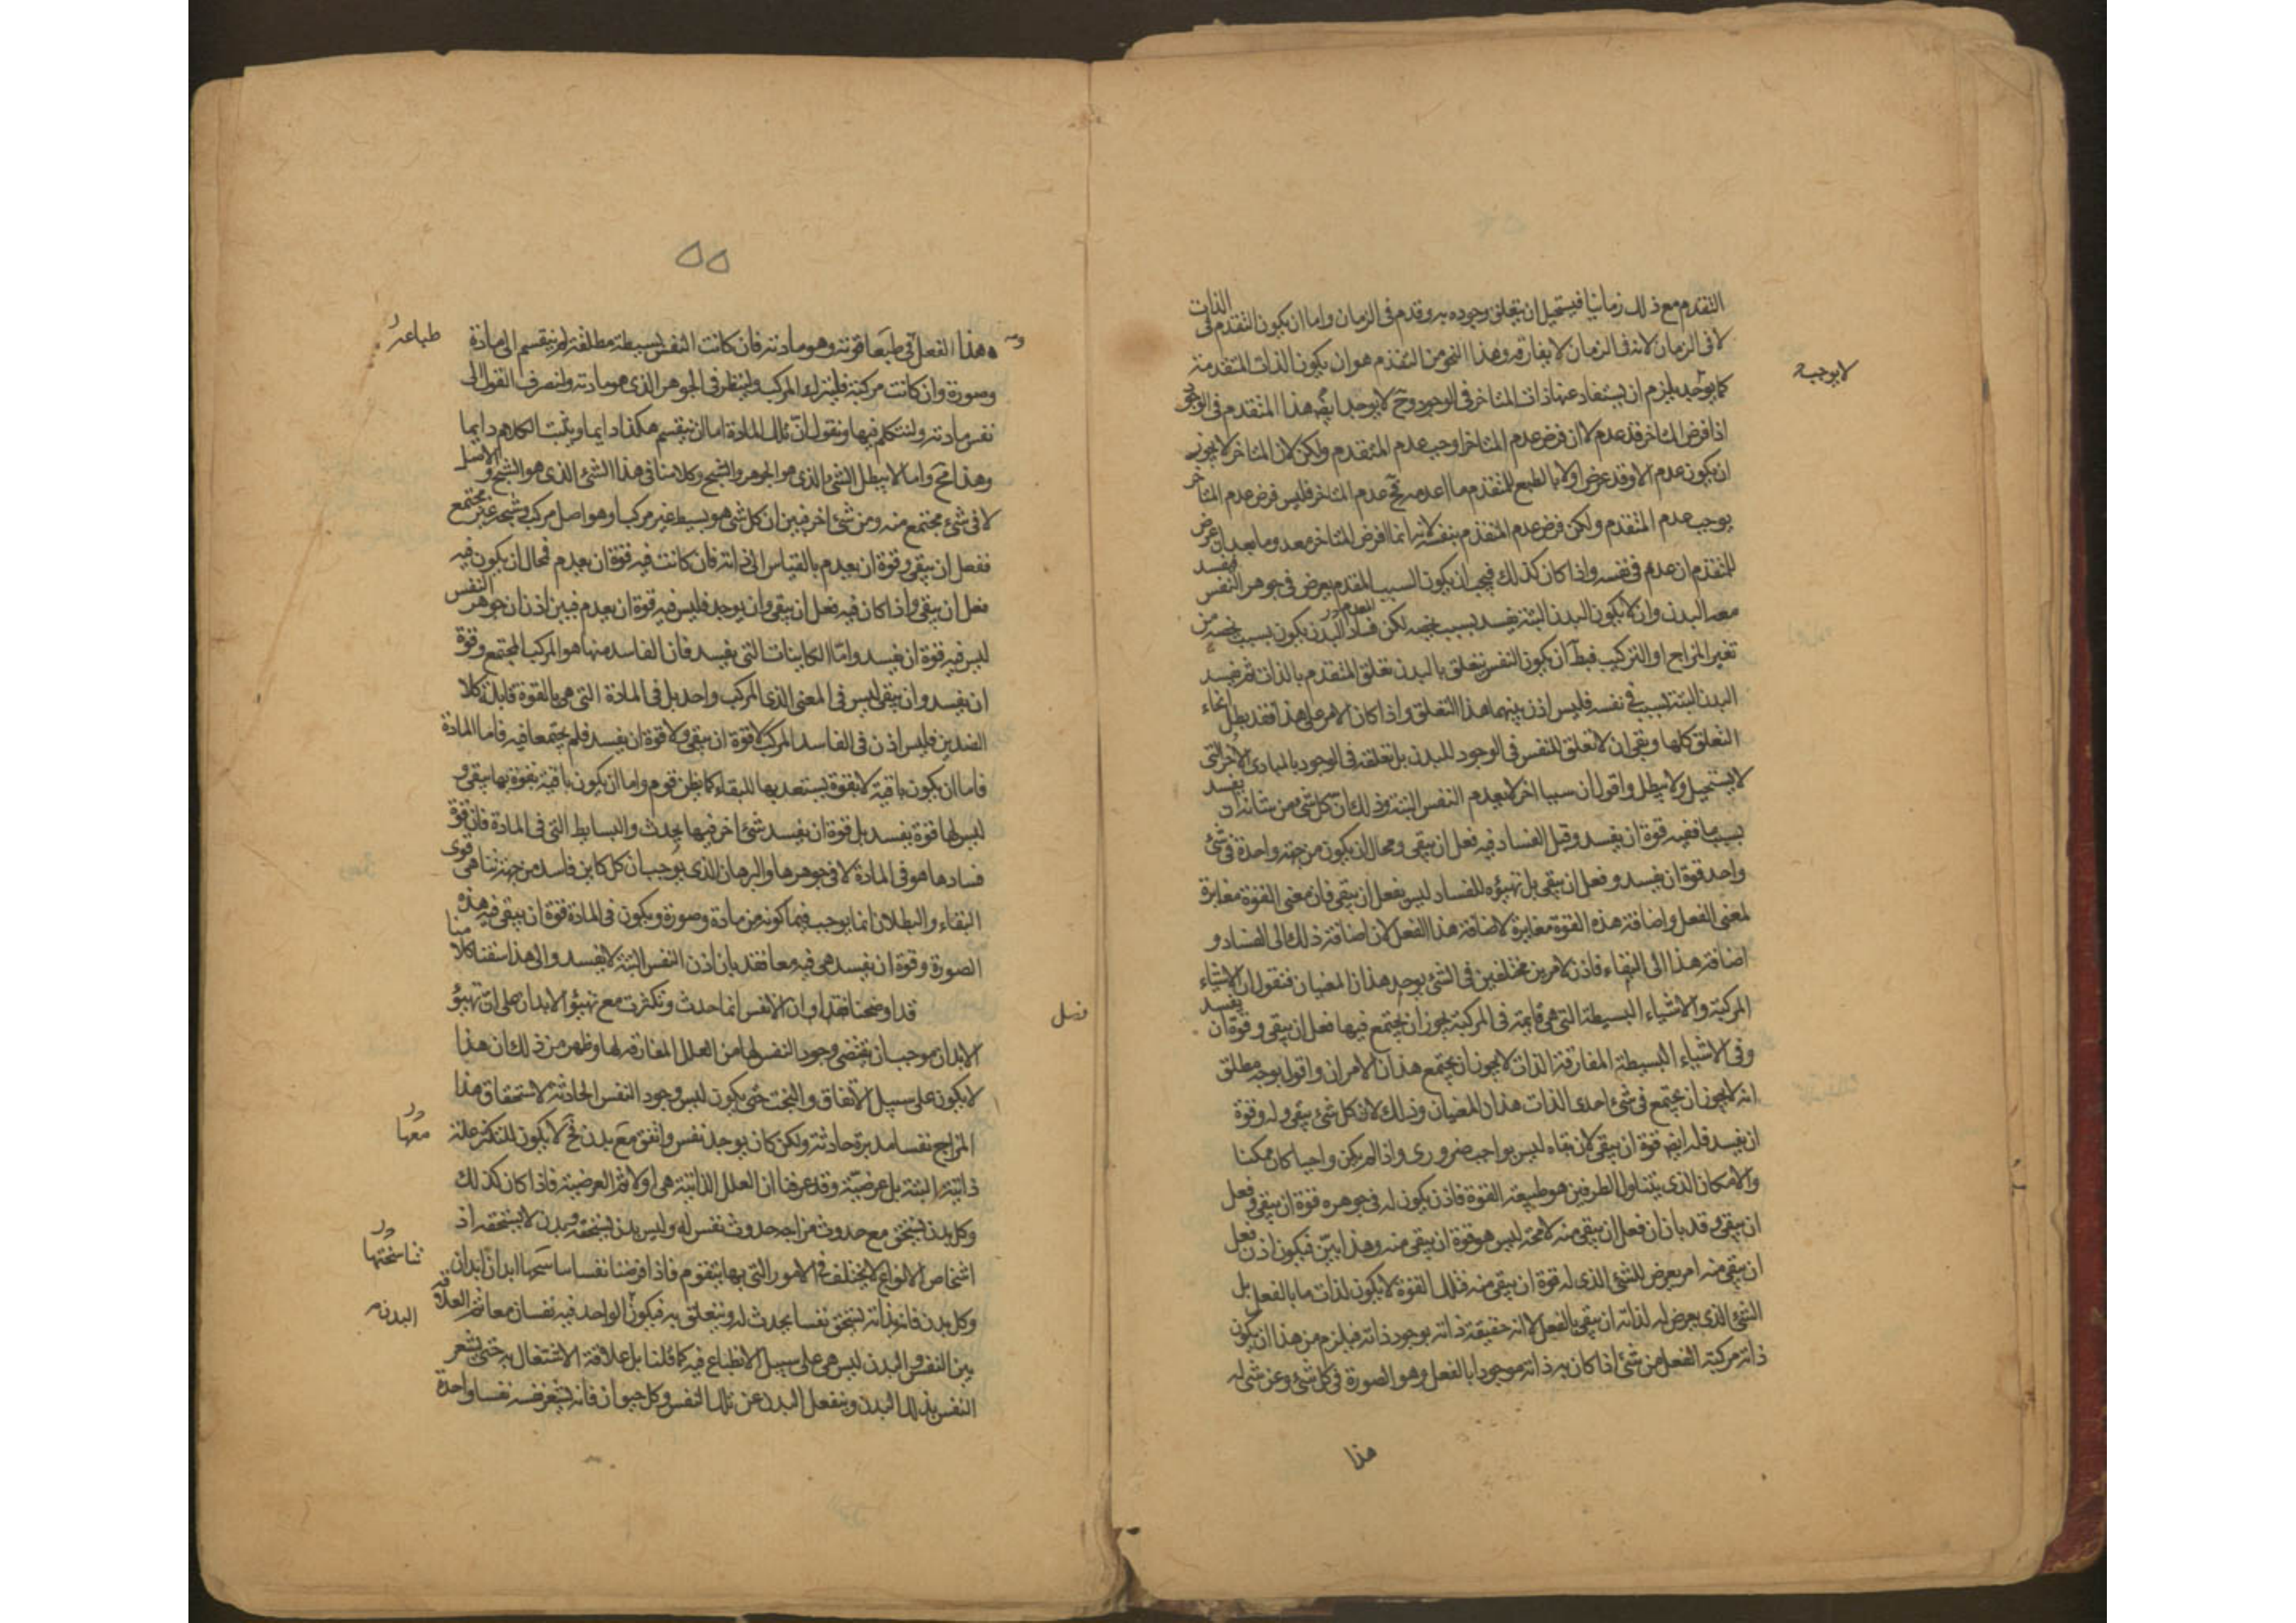 التقدم مع ذلك زمانيا فيستحيل ان يتعلق وجوده به وقد تقدم فى الزمان واما ان يكون التقدم فى الذات
لا فى الزمان لانه فى الزمان لا يفارقه وهذا النحو من التقدم هو ان يكون الذات المتقدمة
كما يوجد يلزم ان يستفاد عنها ذات المتاخر فى الوجود وح لا يوجد ايضه هذا المتقدم فى الوجود
لا يوجبه
اذا فرض المتاخر قد عدم لا ان فرض عدم المتاخر اوجب عدم المتقدم ولكن لان المتاخر لا يجوز
ان يكون عدم الا وقد عرض اولا بالطبع للمتقدم ما اعدمه فح عدم المتاخر فليس فرض عدم المتاخر
يوجب عدم المتقدم ولكن فرض عدم المتقدم بنفسه لانه انما افرض المتاخر معدوما بعد ان عرض
للمتقدم ان عدم فى نفسه واذا كان كذلك فيجب ان يكون السبب المعدم يعرض فى جوهر النفس فيفسد
معه البدن وان لا يكون البدن البتة يفسد بسبب يخصه لكن فساد البدن يكون بسبب يخصه من
تغير المزاج او التركيب فبط ان يكون النفس يتعلق بالبدن تعلق المتقدم بالذات ثم يفسد
البدن البتة بسبب فى نفسه فليس اذن بينهما هذا التعلق واذا كان الامر على هذا فقد بطل انحاء
التعلق كلها وبقى ان لا تعلق للنفس فى الوجود للبدن بل تعلقه فى الوجود بالمبادى الاخر التى
لا يستحيل ولا يبطل واقول ان سببا اخر لا يعدم النفس البتة وذلك ان كل شئ من شانه ان يفسد
بسبب ما ففيه قوة ان يفسد وقبل الفساد فيه فعل ان يبقى ومحال ان يكون من جهة واحدة فى شئ
واحد قوة ان يفسد وفعل ان يبقى بل تهيؤه للفساد ليس بفعل ان يبقى فان معنى القوة مغايرة
لمعنى الفعل واضافة هذه القوة مغايرة لاضافة هذا الفعل لان اضافة ذلك الى الفساد و
اضافة هذا الى البقاء فاذن لامرين مختلفين فى الشئ يوجد هذان المعنيان فنقول ان الاشياء
المركبة والاشياء البسيطة التى هى قايمة فى المركبة يجوز ان يجتمع فيها فعل ان يبقى وقوة ان يفسد
وفى الاشياء البسيطة المفارقة الذات لا يجوز ان يجتمع هذان الامران واقول بوجه مطلق
انه لا يجوز ان يجتمع فى شئ احدى الذات هذان المعنيان وذلك لان كل شئ يبقى وله وقوة
ان يفسد فله ايضه قوة ان يبقى لان بقاه ليس بواجب ضرورى واذا لم يكن واجبا كان ممكنا
والامكان الذى يتناول الطرفين هو طبيعة القوة فاذن يكون له فى جوهره قوة ان يبقى وفعل
ان يبقى وقد بان ان فعل ان يبقى منه لا محة ليس هو قوة ان يبقى منه وهذا بين فيكون اذن فعل
ان يبقى منه امر يعرض للشئ الذى له قوة ان يبقى منه فتلك القوة لا يكون لذات ما بالفعل بل
الشئ الذى يعرض له لذاته ان يبقى بالفعل لا انه حقيقة ذاته بوجود ذاته فيلزم من هذا ان يكون
ذاته مركبة الفعل من شئ اذا كان به ذاته موجودا بالفعل وهو الصورة فى كل شئ وعن شئ له
هذا
٥٥
هذا الفعل فى طبعا قوته وهو مادته فان كانت النفس بسيطة مطلقة لم ينقسم الى مادة
طباعه
وصورة وان كانت مركبة فليترك المركب ولينظر فى الجوهر الذى هو مادته ولنصرف القول الى
نفس مادته ولنتكلم فيها ونقول ان تلك المادة اما ان ينقسم هكذا دايما ويثبت الكلام دايما
وهذا مح واما لا يبطل الشئ الذى هو الجوهر والسنخ وكلامنا فى هذا الشئ الذى هو السنخ والاصل
لا فى شئ مجتمع منه ومن شئ اخر فبين ان كل شئ هو بسيط غير مركب او هو اصل مركب وسنخه غير مجتمع
ففعل ان يبقى وقوة ان يعدم بالقياس الى ذاته فان كانت فيه قوة ان يعدم فمحال ان يكون فيه
فعل ان يبقى واذا كان فيه فعل ان يبقى وان يوجد فليس فيه قوة ان يعدم فبين اذن ان جوهر النفس
ليس فيه قوة ان يفسد واما الكاينات التى يفسد فان الفاسد منها هو المركب المجتمع وقوة
ان يفسد وان يبقى ليس فى المعنى الذى المركب واحد بل فى المادة التى هى بالقوة قابلة كلا
الضدين فليس اذن فى الفاسد المركب لا قوة ان يبقى ولا قوة ان يفسد فلم يجتمعا فيه فاما المادة
فاما ان يكون باقية لا بقوة يستعد بها للبقاء كما يظن قوم واما ان يكون باقية بقوة بها يبقى و
ليس لها قوة يفسد بل قوة ان يفسد شئ اخر فيها يحدث والبسايط التى فى المادة فان قوة
فسادها هو فى المادة لا فى جوهرها والبرهان الذى يوجب ان كل كاين فاسد من جهة تناهى قوى
البقاء والبطلان انما يوجب فيما كونه من مادة وصورة ويكون فى المادة قوة ان يبقى فيه هذه
الصورة وقوة ان يفسد هى فيه معا فقد بان اذن النفس البتة لا يفسد والى هذا سقنا كلامنا
فصل
قد اوضحنا فقد او ان الانفس انما حدث وتكثرت مع تهيؤ الابدان على ان تهيؤ
الابدان موجب ان يقتضى وجود النفس لها من العلل المفارقه لها وظهر من ذلك ان هذا
لا يكون على سبيل الاتفاق والبخت حتى يكون ليس وجود النفس الحادثه لاستحقاق هذا
المزاج نفسا مدبرة حادثة ولكن كان يوجد نفس واتفق مع بدن فح لا يكون للتكثر علة
معها
ذاتية البتة بل عرضية وقد عرفنا ان العلل الذاتية هى اولا ثم العرضية فاذا كان كذلك
وكل بدن يستحق مع حدوث مزاجه حدوث نفس له وليس بدن يستحقه وبدن لا يستحقه اذ
اشخاص الانواع لا يختلف فى الامور التى بها يتقوم فاذا فرضنا نفسا ساسحها ابدان ابدان
تناسختها
وكل بدن فانه بذاته يستحق نفسا يحدث له ويتعلق به فيكون الواحد فيه نفسان معا ثم العلاقة
البدن
بين النفس والبدن ليس هى على سبيل الانطباع فيه كما قلنا بل علاقة الاشتغال به حتى يشعر
النفس بذلك البدن وينفعل البدن عن تلك النفس وكل حيوان فانه يشعر نفسه نفسا واحدة